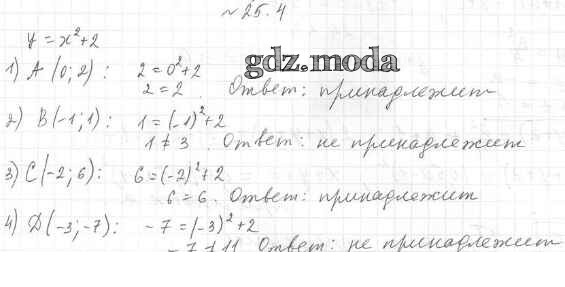 № 25.4
y = x²+2
gdz.moda
1) A (0; 2) : 2 = 0²+2
2 = 2. Ответ: принадлежит
2) B(-1; 1) : 1 = (-1)²+2
1 ≠ 3. Ответ: не принадлежит
3) C(-2; 6): 6 = (-2)²+2
6 = 6. Ответ: принадлежит
4) D(-3; -7) : -7 = (-3)²+2
-7 ≠ 11 Ответ: не принадлежит